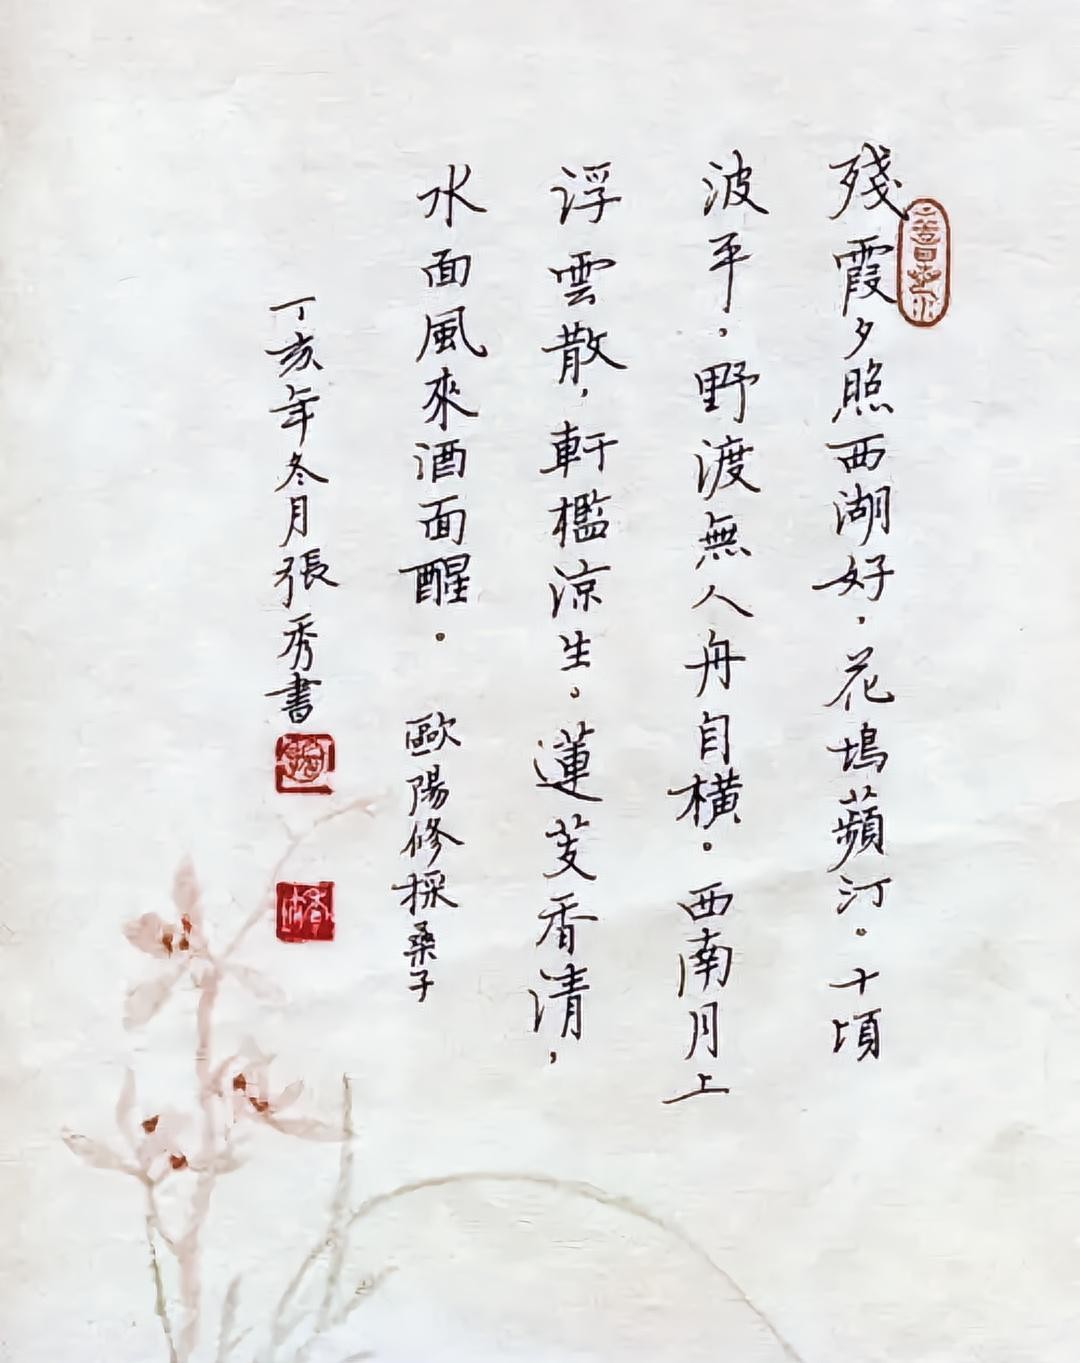 殘霞夕照西湖好，花塢蘋汀。十頃
波平，野渡無人舟自橫。西南月上
浮雲散，軒檻涼生。蓮芰香清，
水面風來酒面醒。 歐陽修採桑子
丁亥年冬月張秀書